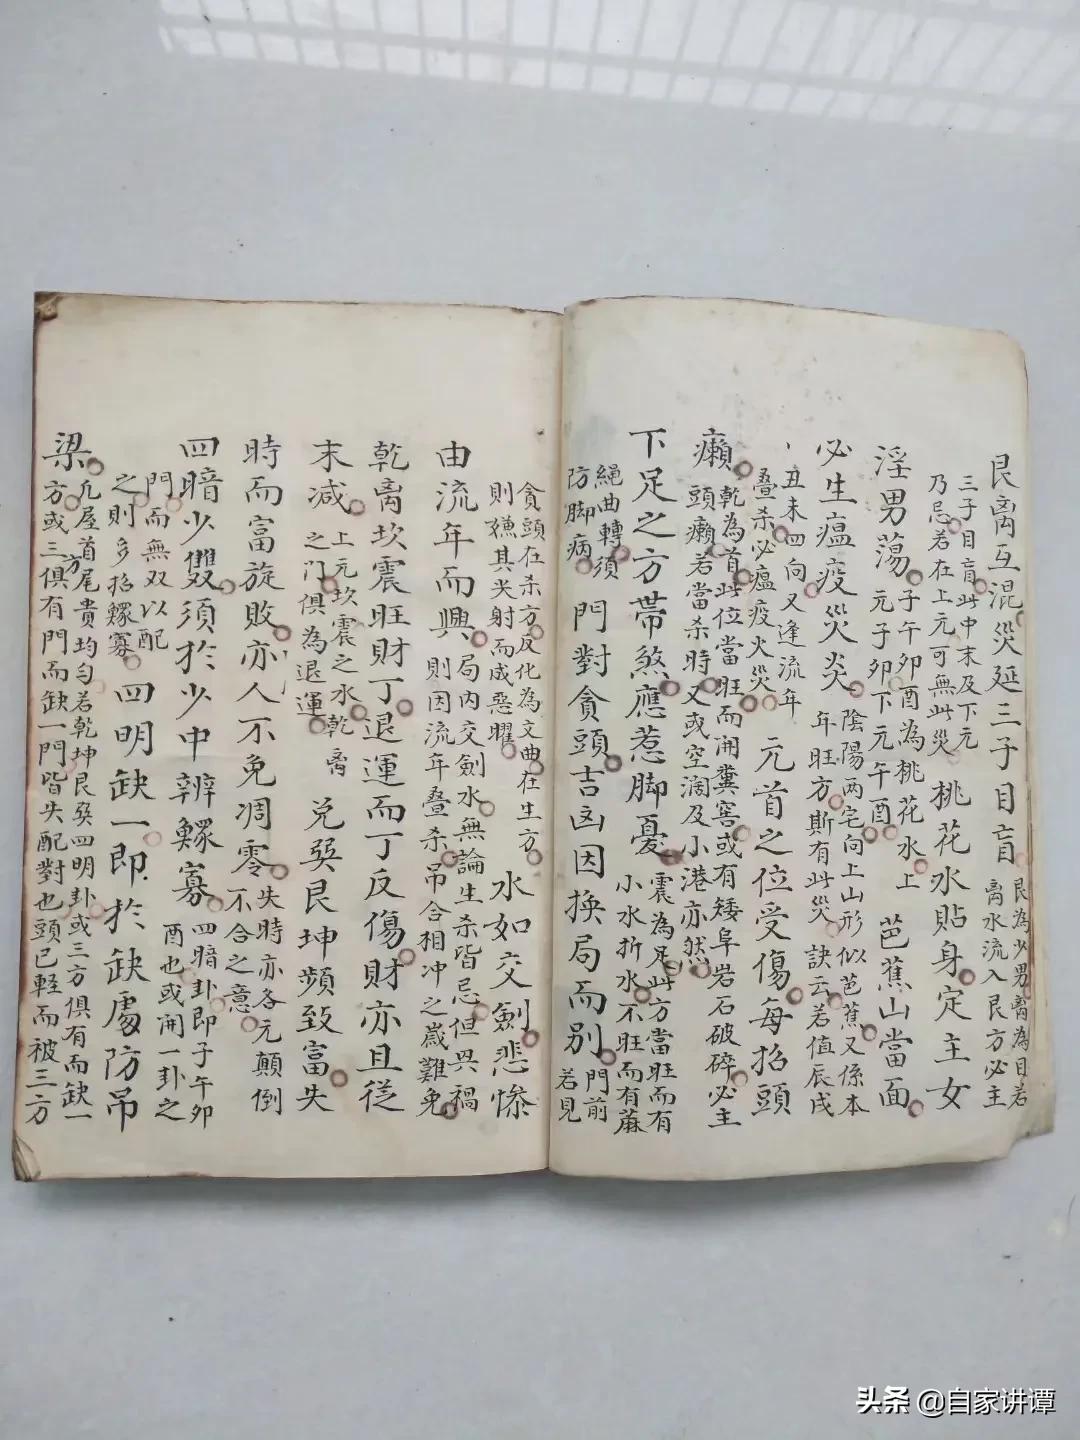 艮离互混災延三子目盲
艮為少男离為目若
离水流入艮方必主
三子目盲此中末及下元
乃忌若在上元可無此災
桃花水貼身定主女
淫男蕩
子午卯酉為桃花水上
元子卯下元午酉
芭蕉山當面
必生瘟疫災炎
陰陽两宅向上山形似芭蕉又係本
年旺方斯有此災訣云若值辰戌
丑未四向又逢流年
叠杀必瘟疫火災
元首之位受傷每招頭
癩
乾為首此位當旺而開糞窖或有矮阜岩石破碎必主
頭癩若當杀時又或空濶及小港亦然
下足之方帶煞應惹脚憂
震為足此方當旺而有
小水折水不旺而有蔴
繩曲轉須
防脚病
門對貪頭吉凶因换局而别
門前
若見
貪頭在杀方反化為文曲在生方
則其尖射而成惡曜
水如交劍悲慘
由流年而興
局内交劍水無論生杀皆忌但興禍
則因流年叠杀吊合相冲之歲難免
乾离坎震旺財丁退運而丁反傷財亦且從
末减
上元坎震之水乾离
之门俱為退運
兑巽艮坤頻致富失
時而富旋敗亦人不免凋零
失時亦各元顛倒
不合之意
四暗少雙須於少中辨鰥寡
四暗卦即子午卯
酉也或開一卦之
門而無双以配
之則多招鰥寡
四明缺一即於缺處防吊
梁
凢屋首尾貴均匀若乾坤艮巽四明卦或三方俱有而缺一
方或三方俱有門而缺一門皆失配對也頭已軽而被三方
头条 @自家讲谭